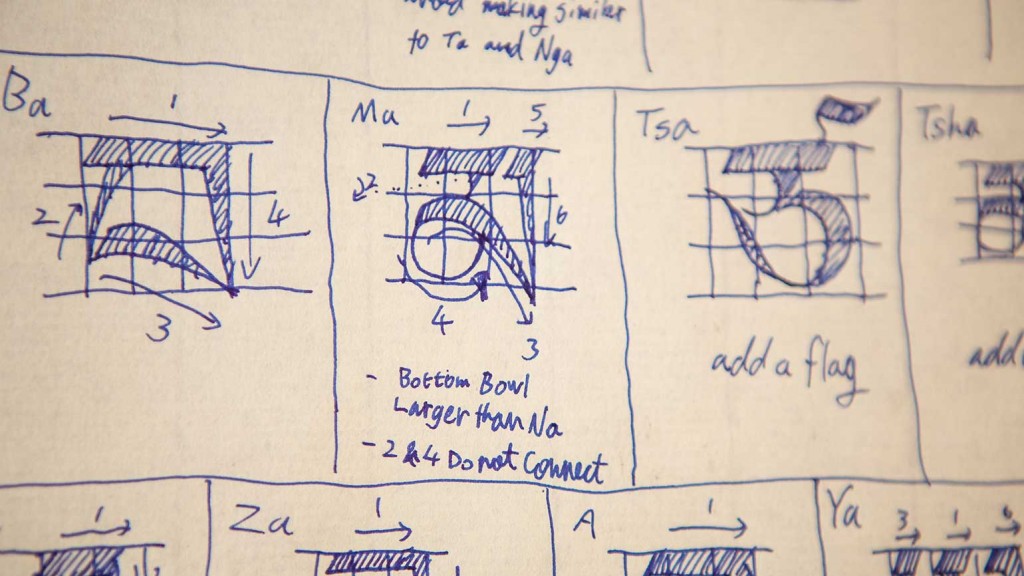 making similar
to Ta and Nga
Ba
1
2
4
3
Ma
1
5
2
6
4
3
- Bottom Bowl
Larger than Na
- 2 & 4 Do not Connect
Tsa
add a flag
Tsha
add
1
Za
1
A
1
Ya
3
1